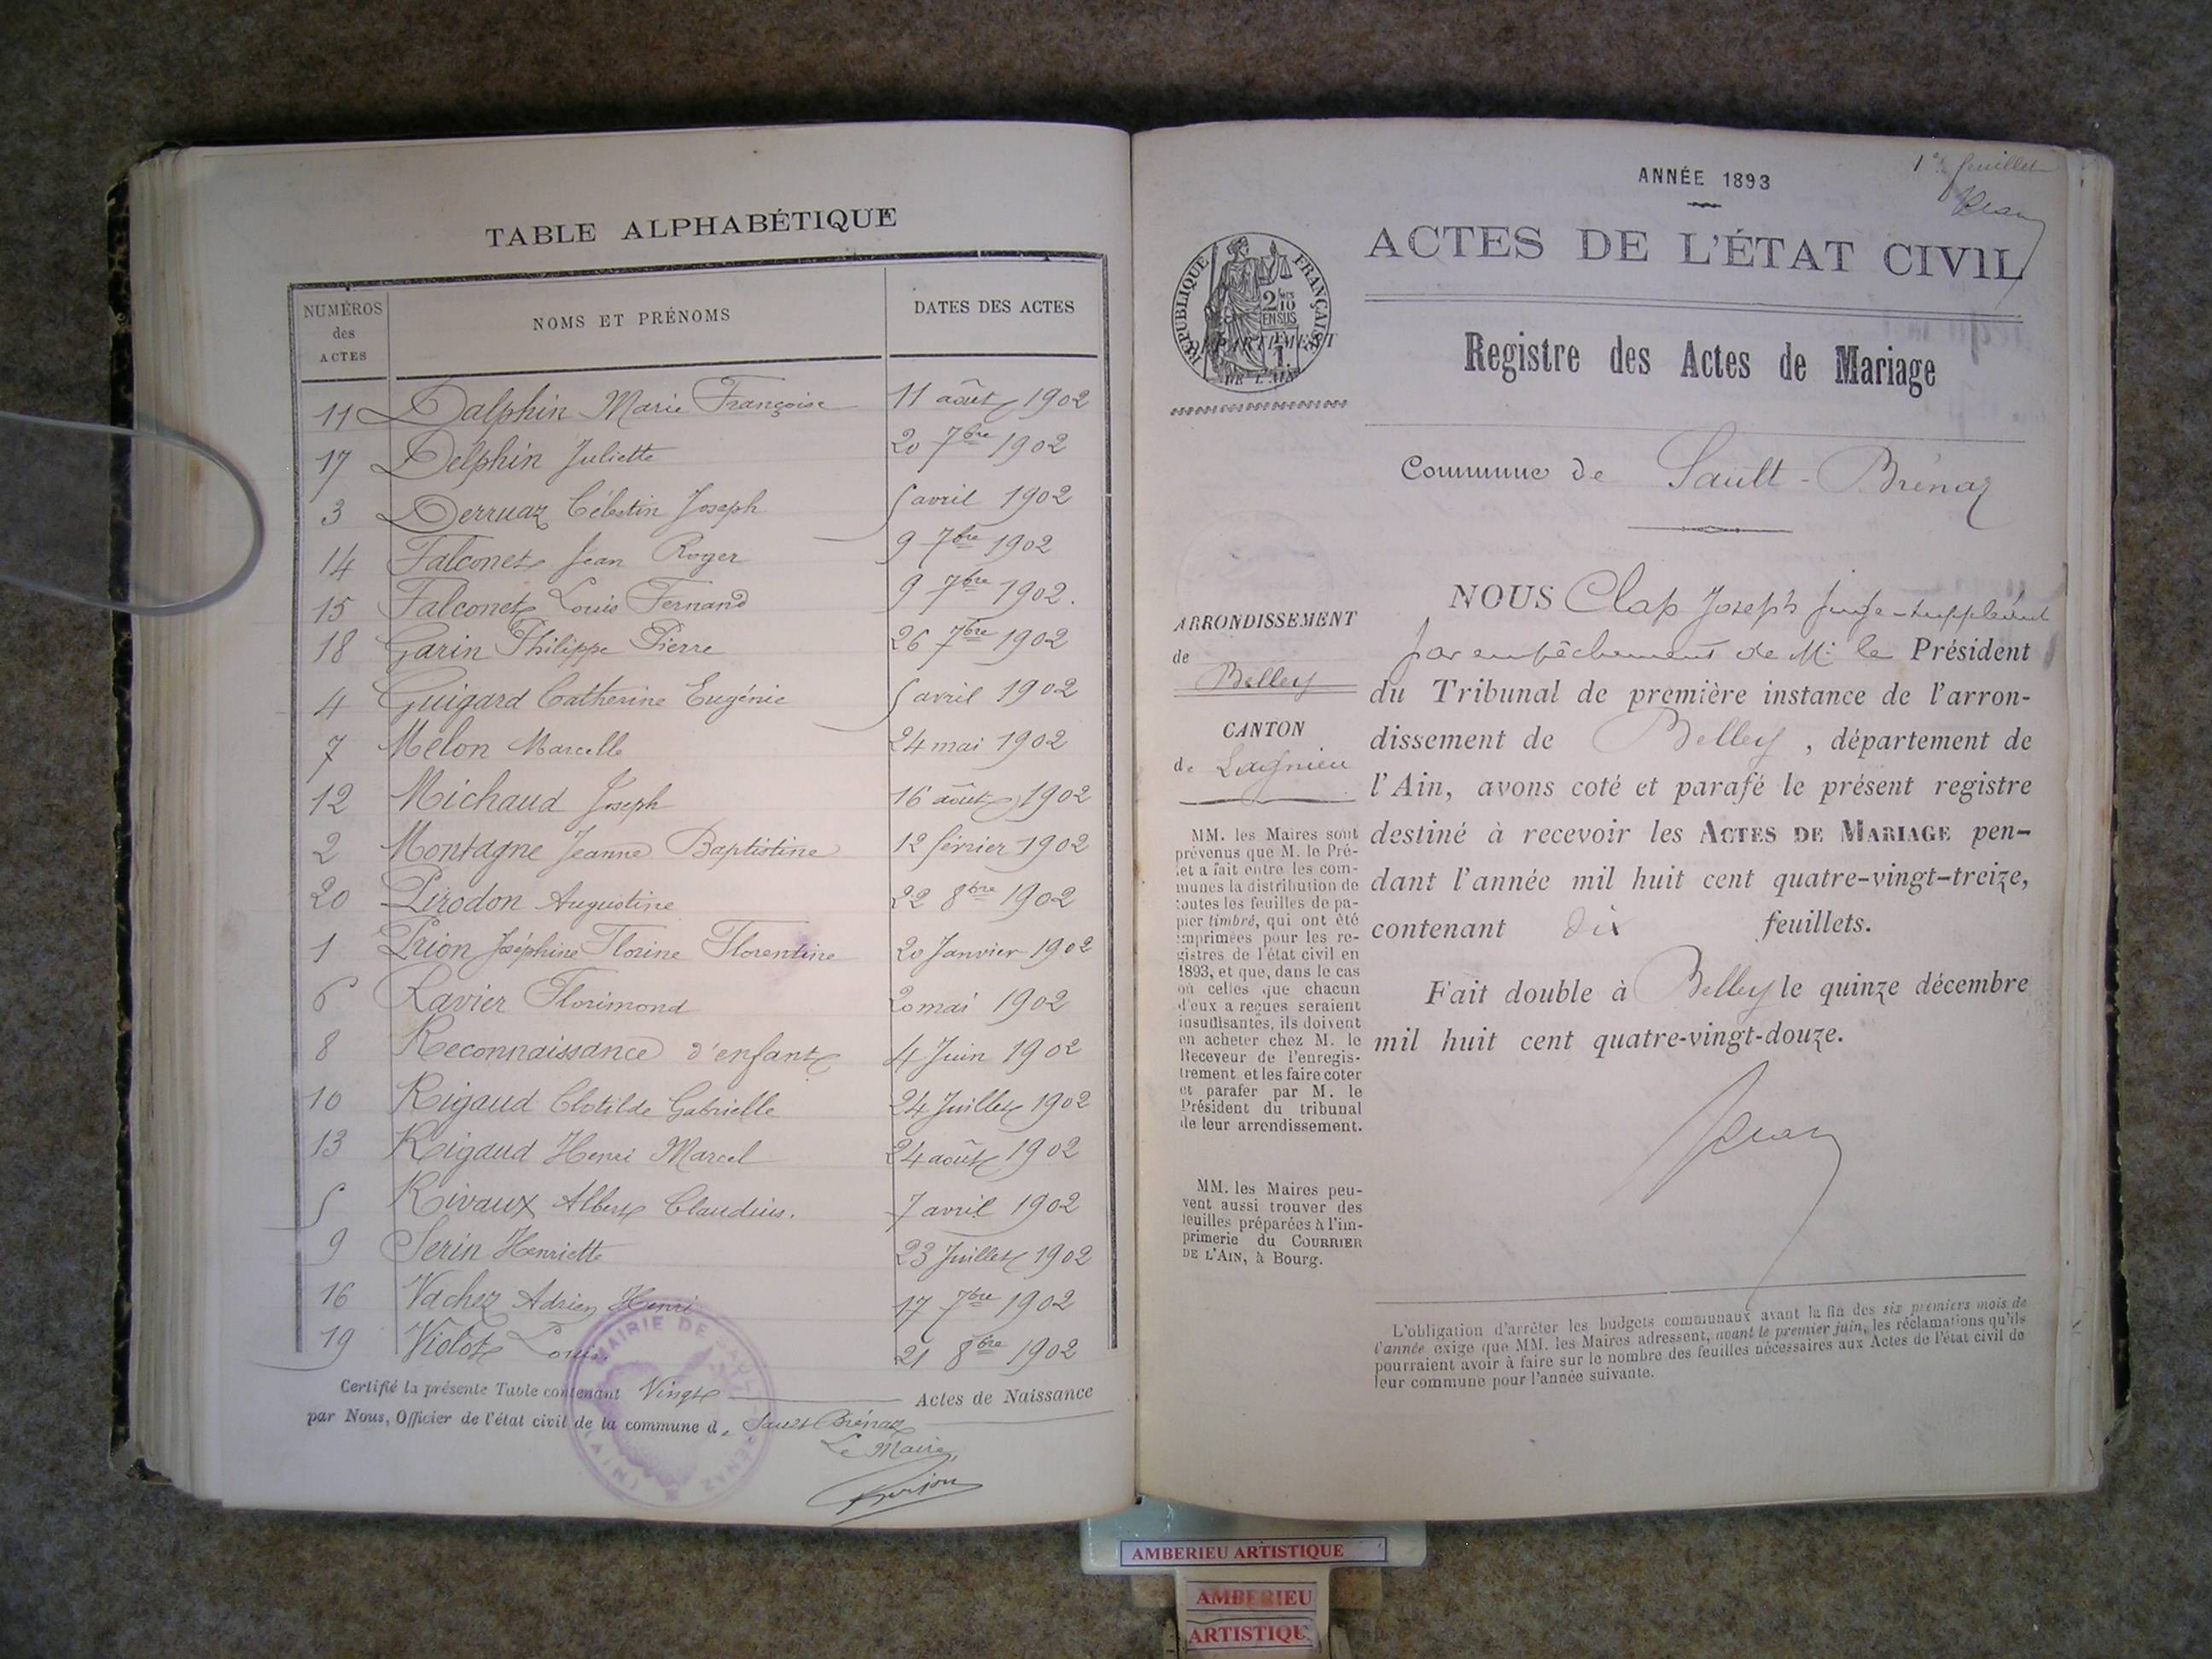 TABLE ALPHABÉTIQUE
NUMÉROS
des
ACTES
NOMS ET PRÉNOMS
DATES DES ACTES
11 Dalphin Marie Françoise 11 août 1902
17 Delphin Juliette 20 7bre 1902
3 Derruaz Célestin Joseph 5 avril 1902
14 Falconet Jean Roger 9 7bre 1902
15 Falconet Louis Fernand 9 7bre 1902.
18 Garin Philippe Pierre 26 7bre 1902
4 Guigard Catherine Eugénie 5 avril 1902
7 Mélon Marcelle 24 mai 1902
12 Michaud Joseph 16 août 1902
2 Montagne Jeanne Baptistine 12 février 1902
20 Pirodon Augustine 22 8bre 1902
1 Prion Joséphine Florine Florentine 20 Janvier 1902
6 Ravier Florimond 20 mai 1902
8 Reconnaissance d'enfant 4 Juin 1902
10 Rigaud Clotilde Gabrielle 24 Juillet 1902
13 Rigaud Henri Marcel 24 août 1902
5 Rivaux Albert Claudius. 7 avril 1902
9 Serin Henriette 23 Juillet 1902
16 Vachez Adrien Henri 17 7bre 1902
19 Violot Louis. 21 8bre 1902
Certifié la présente Table contenant Vingt Actes de Naissance
par Nous, Officier de l'état civil de la commune de Sault-Brénaz
Le Maire,
MAIRIE DE SAULT-BRÉNAZ (AIN)
1er feuillet
ANNÉE 1893
ACTES DE L'ÉTAT CIVIL
RÉPUBLIQUE FRANÇAISE
2/10
EN SUS
DÉPARTEMENT
DE L'AIN
Registre des Actes de Mariage
Commune de Sault-Brénaz
ARRONDISSEMENT
de
Belley
CANTON
de Lagnieu
MM. les Maires sont
prévenus que M. le Pré-
fet a fait entre les com-
munes la distribution de
toutes les feuilles de pa-
pier timbré, qui ont été
imprimées pour les re-
gistres de l'état civil en
1893, et que, dans le cas
où celles que chacun
d'eux a reçues seraient
insuffisantes, ils doivent
en acheter chez M. le
Receveur de l'enregis-
trement et les faire coter
et parafer par M. le
Président du tribunal
de leur arrondissement.
MM. les Maires peu-
vent aussi trouver des
feuilles préparées à l'im-
primerie du COURRIER
DE L'AIN, à Bourg.
NOUS Clap Joseph juge-suppléant
par empêchement de Mr le Président
du Tribunal de première instance de l'arron-
dissement de Belley, département de
l'Ain, avons coté et parafé le présent registre
destiné à recevoir les ACTES DE MARIAGE pen-
dant l'année mil huit cent quatre-vingt-treize,
contenant dix feuillets.
Fait double à Belley le quinze décembre
mil huit cent quatre-vingt-douze.
L'obligation d'arrêter les budgets communaux avant la fin des six premiers mois de
l'année exige que MM. les Maires adressent, avant le premier juin, les réclamations qu'ils
pourraient avoir à faire sur le nombre des feuilles nécessaires aux Actes de l'état civil de
leur commune pour l'année suivante.
AMBERIEU ARTISTIQUE
AMBERIEU
ARTISTIQU